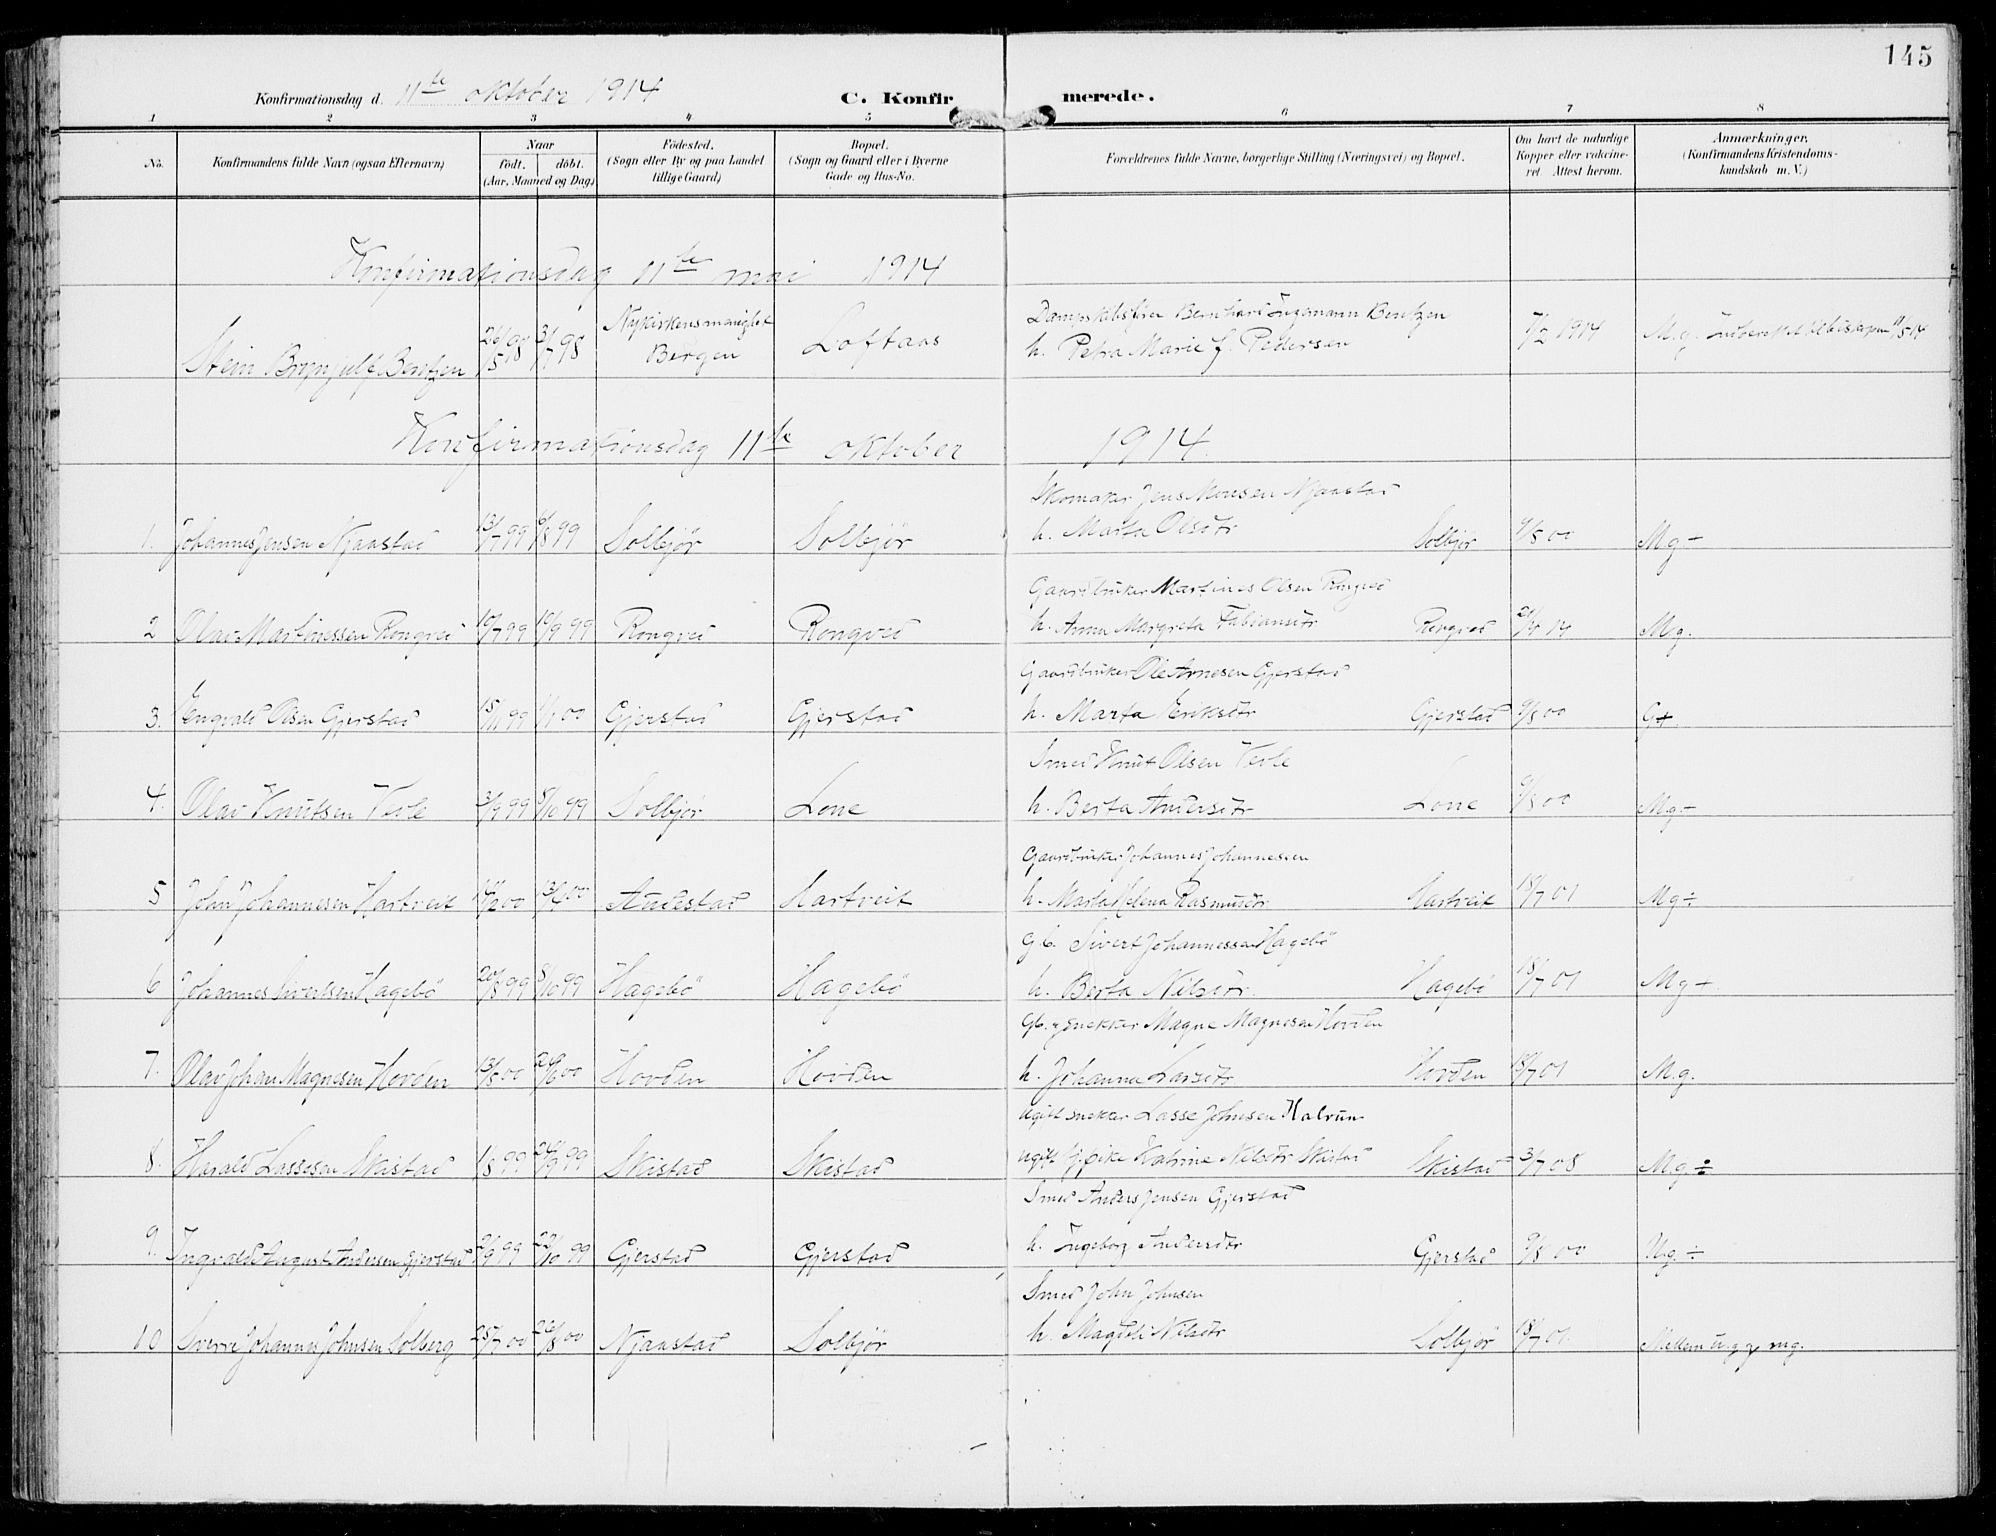 145
Konfirmationsdag d. 11te oktober 1914
C. Konfirmerede.
1 2 3 4 5 6 7 8
No.
Konfirmandens fulde Navn (ogsaa Efternavn)
Naar
födt. döbt.
(Aar, Maaned og Dag)
Födested.
(Sogn eller By og paa Landet
tillige Gaard)
Bopæl.
(Sogn og Gaard eller i Byerne
Gade og Hus-No.
Forældrenes fulde Navne, borgerlige Stilling (Næringsvei) og Bopæl.
Om havt de naturlige
Kopper eller vakcine-
ret Attest herom.
Anmærkninger,
(Konfirmandens Kristendoms-
kundskab m. V.)
Konfirmationsdag 11te mai 1914
Dampskibsfører Bernhard Ingemann Bentzen
Stein Brynjulf Bentzen 26/5 98 31/7 98 Nykirkens menighet Bergen Loftaas h. Petra Marie f. Pedersen 7/2 1914 M.g.
Konfirmationsdag 11te oktober 1914.
Skomaker Jens Monsen Njaastad
1. Johannes Jensen Njaastad 13/7 99 6/8 99 Solbjör Solbjör h. Marta Olsdtr Solbjör 9/8 00 M.g. -
Gaardbruker Martines Olsen Rongved
2 Olav Martinessen Rongved 10/7 99 10/9 99 Rongved Rongved h. Anna Margreta Fabiansdtr Rongved 21/4 14 M.g.
Gaardbruker Ole Arnesen Gjerstad
3. Engvald Olsen Gjerstad 15/11 99 1/1 00 Gjerstad Gjerstad h. Marta Eriksdtr Gjerstad 9/8 00 G+
Smed Knut Olsen Vevle
4. Olav Knutsen Vevle 3/9 99 8/10 99 Solbjör Lone h. Berta Andersdtr Lone 9/8 00 Mg -
Gaardbruker Johannes Johannessen
5 John Johannesen Hartveit 13/6 00 Andestad Hartveit h. Marta Helena Rasmusdtr Hartveit 18/7 01 Mg ÷
Gb. Sivert Johannessen Hagebö
6 Johannes Sivertsen Hagebö 20/8 99 8/10 99 Hagebö Hagebö h. Berta Nilsdtr. Hagebö 18/7 01 M.g -.
Gb. & snekker Magne Magnesen Hovden
7. Olav Johan Magnesen Hovden 13/5 00 24/6 00 Hovden Hovden h. Johanna Larsdtr Hovden 18/7 01 M.g.
ugift snekker Lasse Johnsen Kalvun
8. Harald Lassesen Skistad 1/8 99 24/9 99 Skistad Skistad ugift pike Katrine Nilsdtr Skistad Skistad 3/7 08 M.g ÷
Smed Anders Jensen Gjerstad
9. Ingvald August Andersen Gjerstad 2/9 99 22/10 99 Gjerstad Gjerstad h. Ingeborg Andersdtr Gjerstad 9/8 00 M.g. ÷
Smed John Johnsen
10 Sverre Johannes Johnsen Solberg 25/7 00 26/8 00 Njaastad Solbjör h. Magdeli Nilsdtr Solbjör 18/7 01. Mellem u.g. & mg.